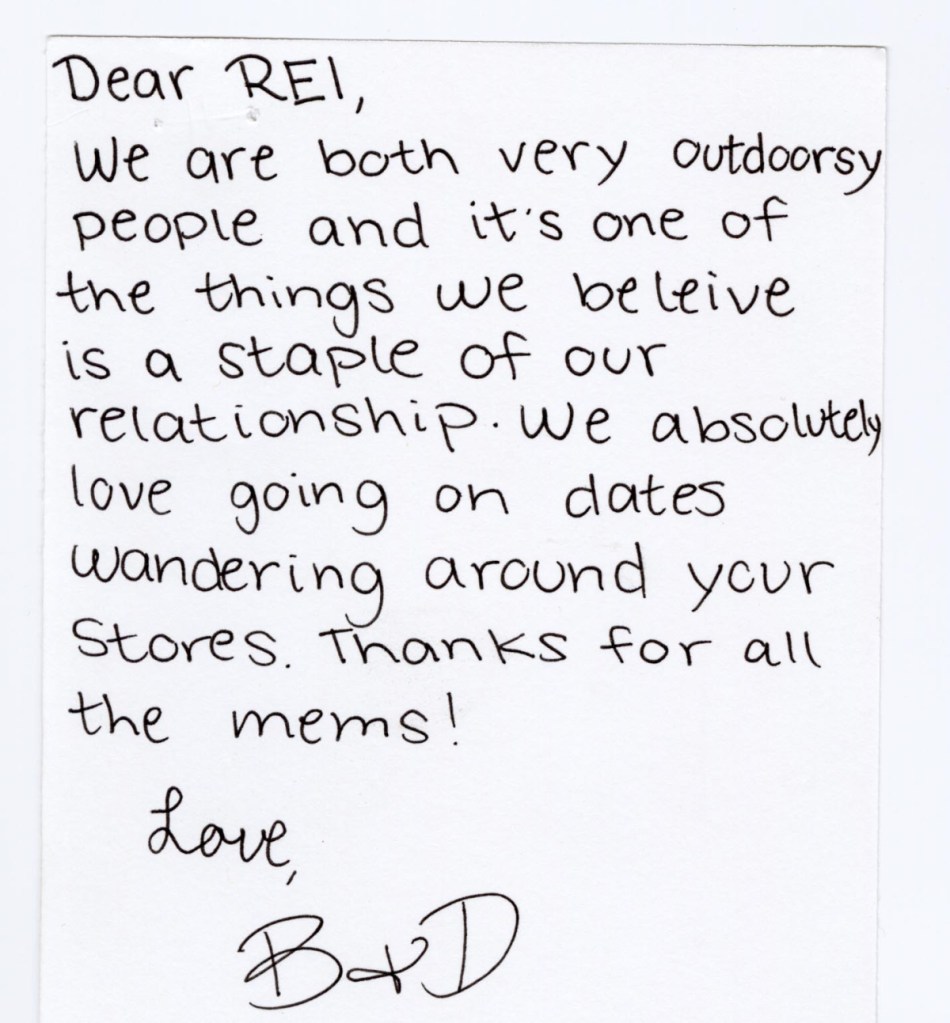 Dear REI,
We are both very outdoorsy
people and it's one of
the things we beleive
is a staple of our
relationship. We absolutely
love going on dates
wandering around your
Stores. Thanks for all
the mems!
Love,
B & D